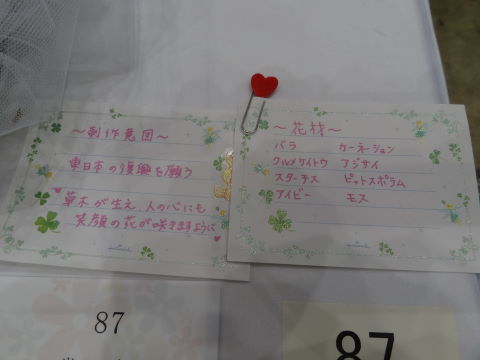 ～制作意図～
東日本の復興を願う
草木が生え、人の心にも
笑顔の花が咲きますように
～花材～
バラ カーネーション
クルメケイトウ アジサイ
スターチス ピットスポラム
アイビー モス
87
87